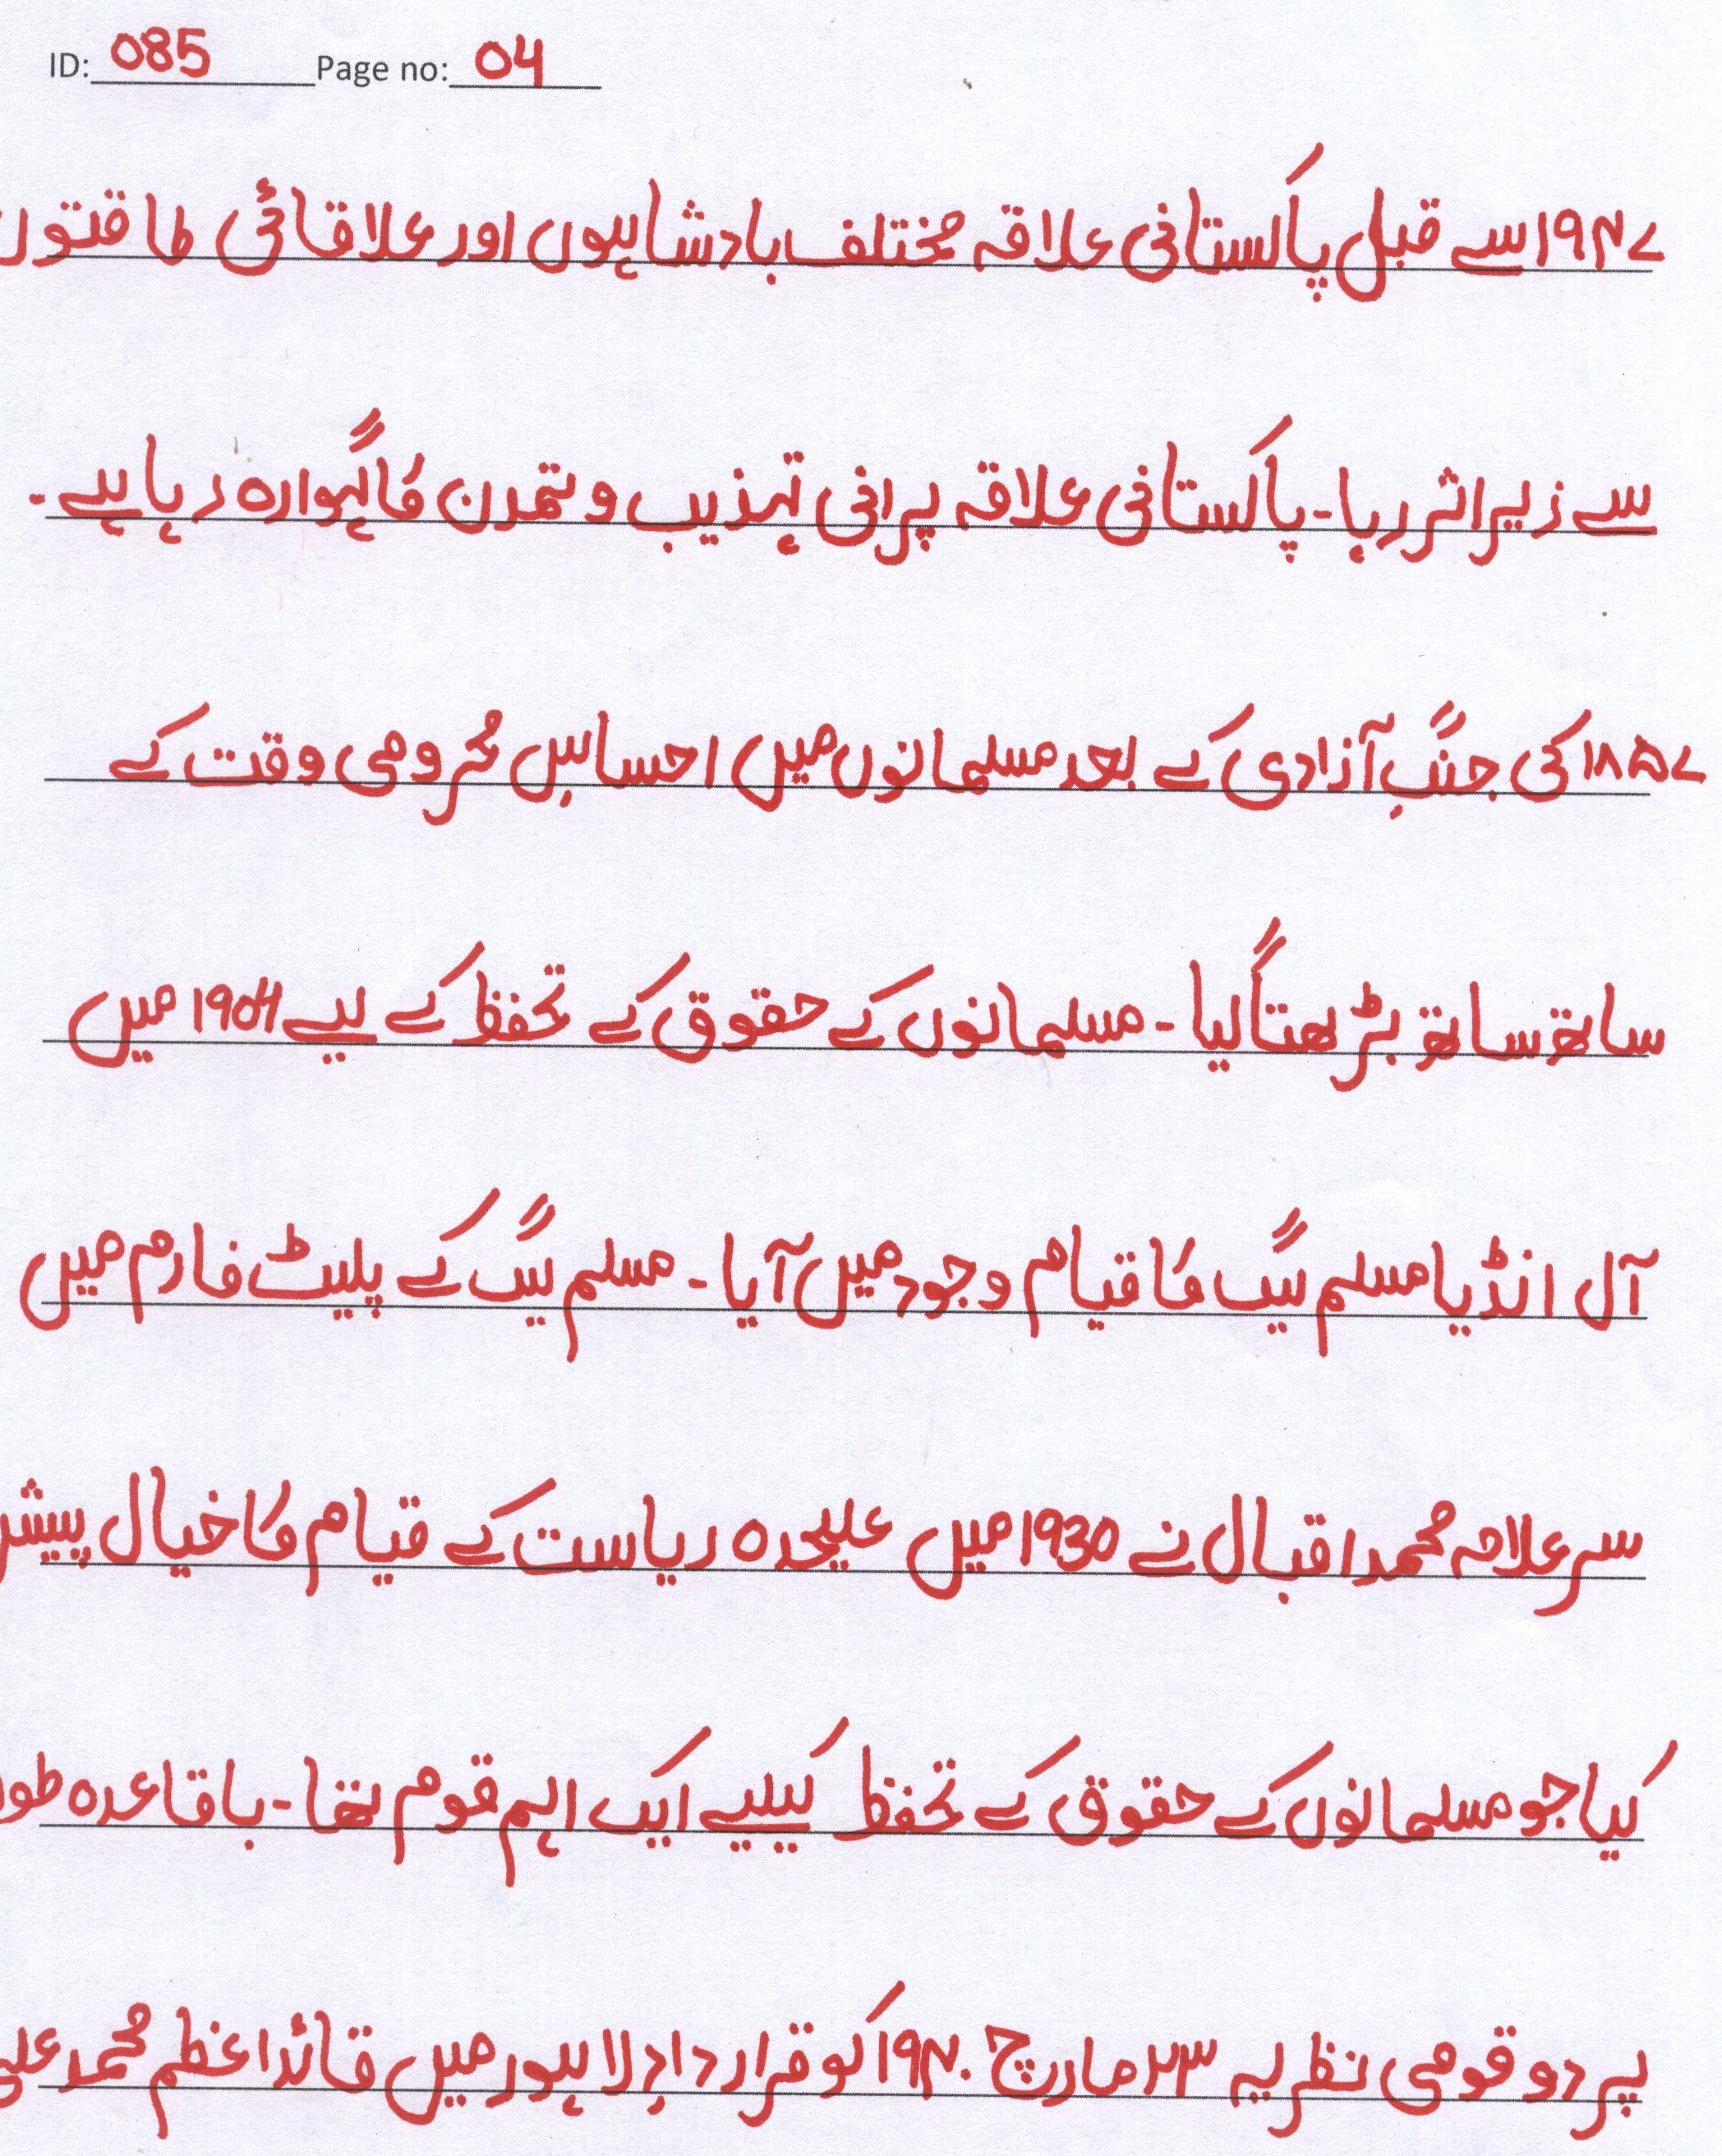 ID: 085 Page no: 04
۱۹۴۷ سے قبل پاکستانی علاقہ مختلف بادشاہوں اور علاقائی طاقتوں
سے زیر اثر رہا۔ پاکستانی علاقہ پرانی تہذیب و تمدن کا گہوارہ رہا ہے۔
۱۸۵۷ کی جنگِ آزادی کے بعد مسلمانوں میں احساسِ محرومی وقت کے
ساتھ ساتھ بڑھتا گیا۔ مسلمانوں کے حقوق کے تحفظ کے لیے ۱۹۰۶ میں
آل انڈیا مسلم لیگ کا قیام وجود میں آیا۔ مسلم لیگ کے پلیٹ فارم میں
سر علامہ محمد اقبال نے 1930 میں علیحدہ ریاست کے قیام کا خیال پیش
کیا جو مسلمانوں کے حقوق کے تحفظ کیلیے ایک اہم قوم تھا۔ باقاعدہ طور
پر دو قومی نظریہ ۲۳ مارچ ۱۹۴۰ کو قراردادِ لاہور میں قائداعظم محمد علی